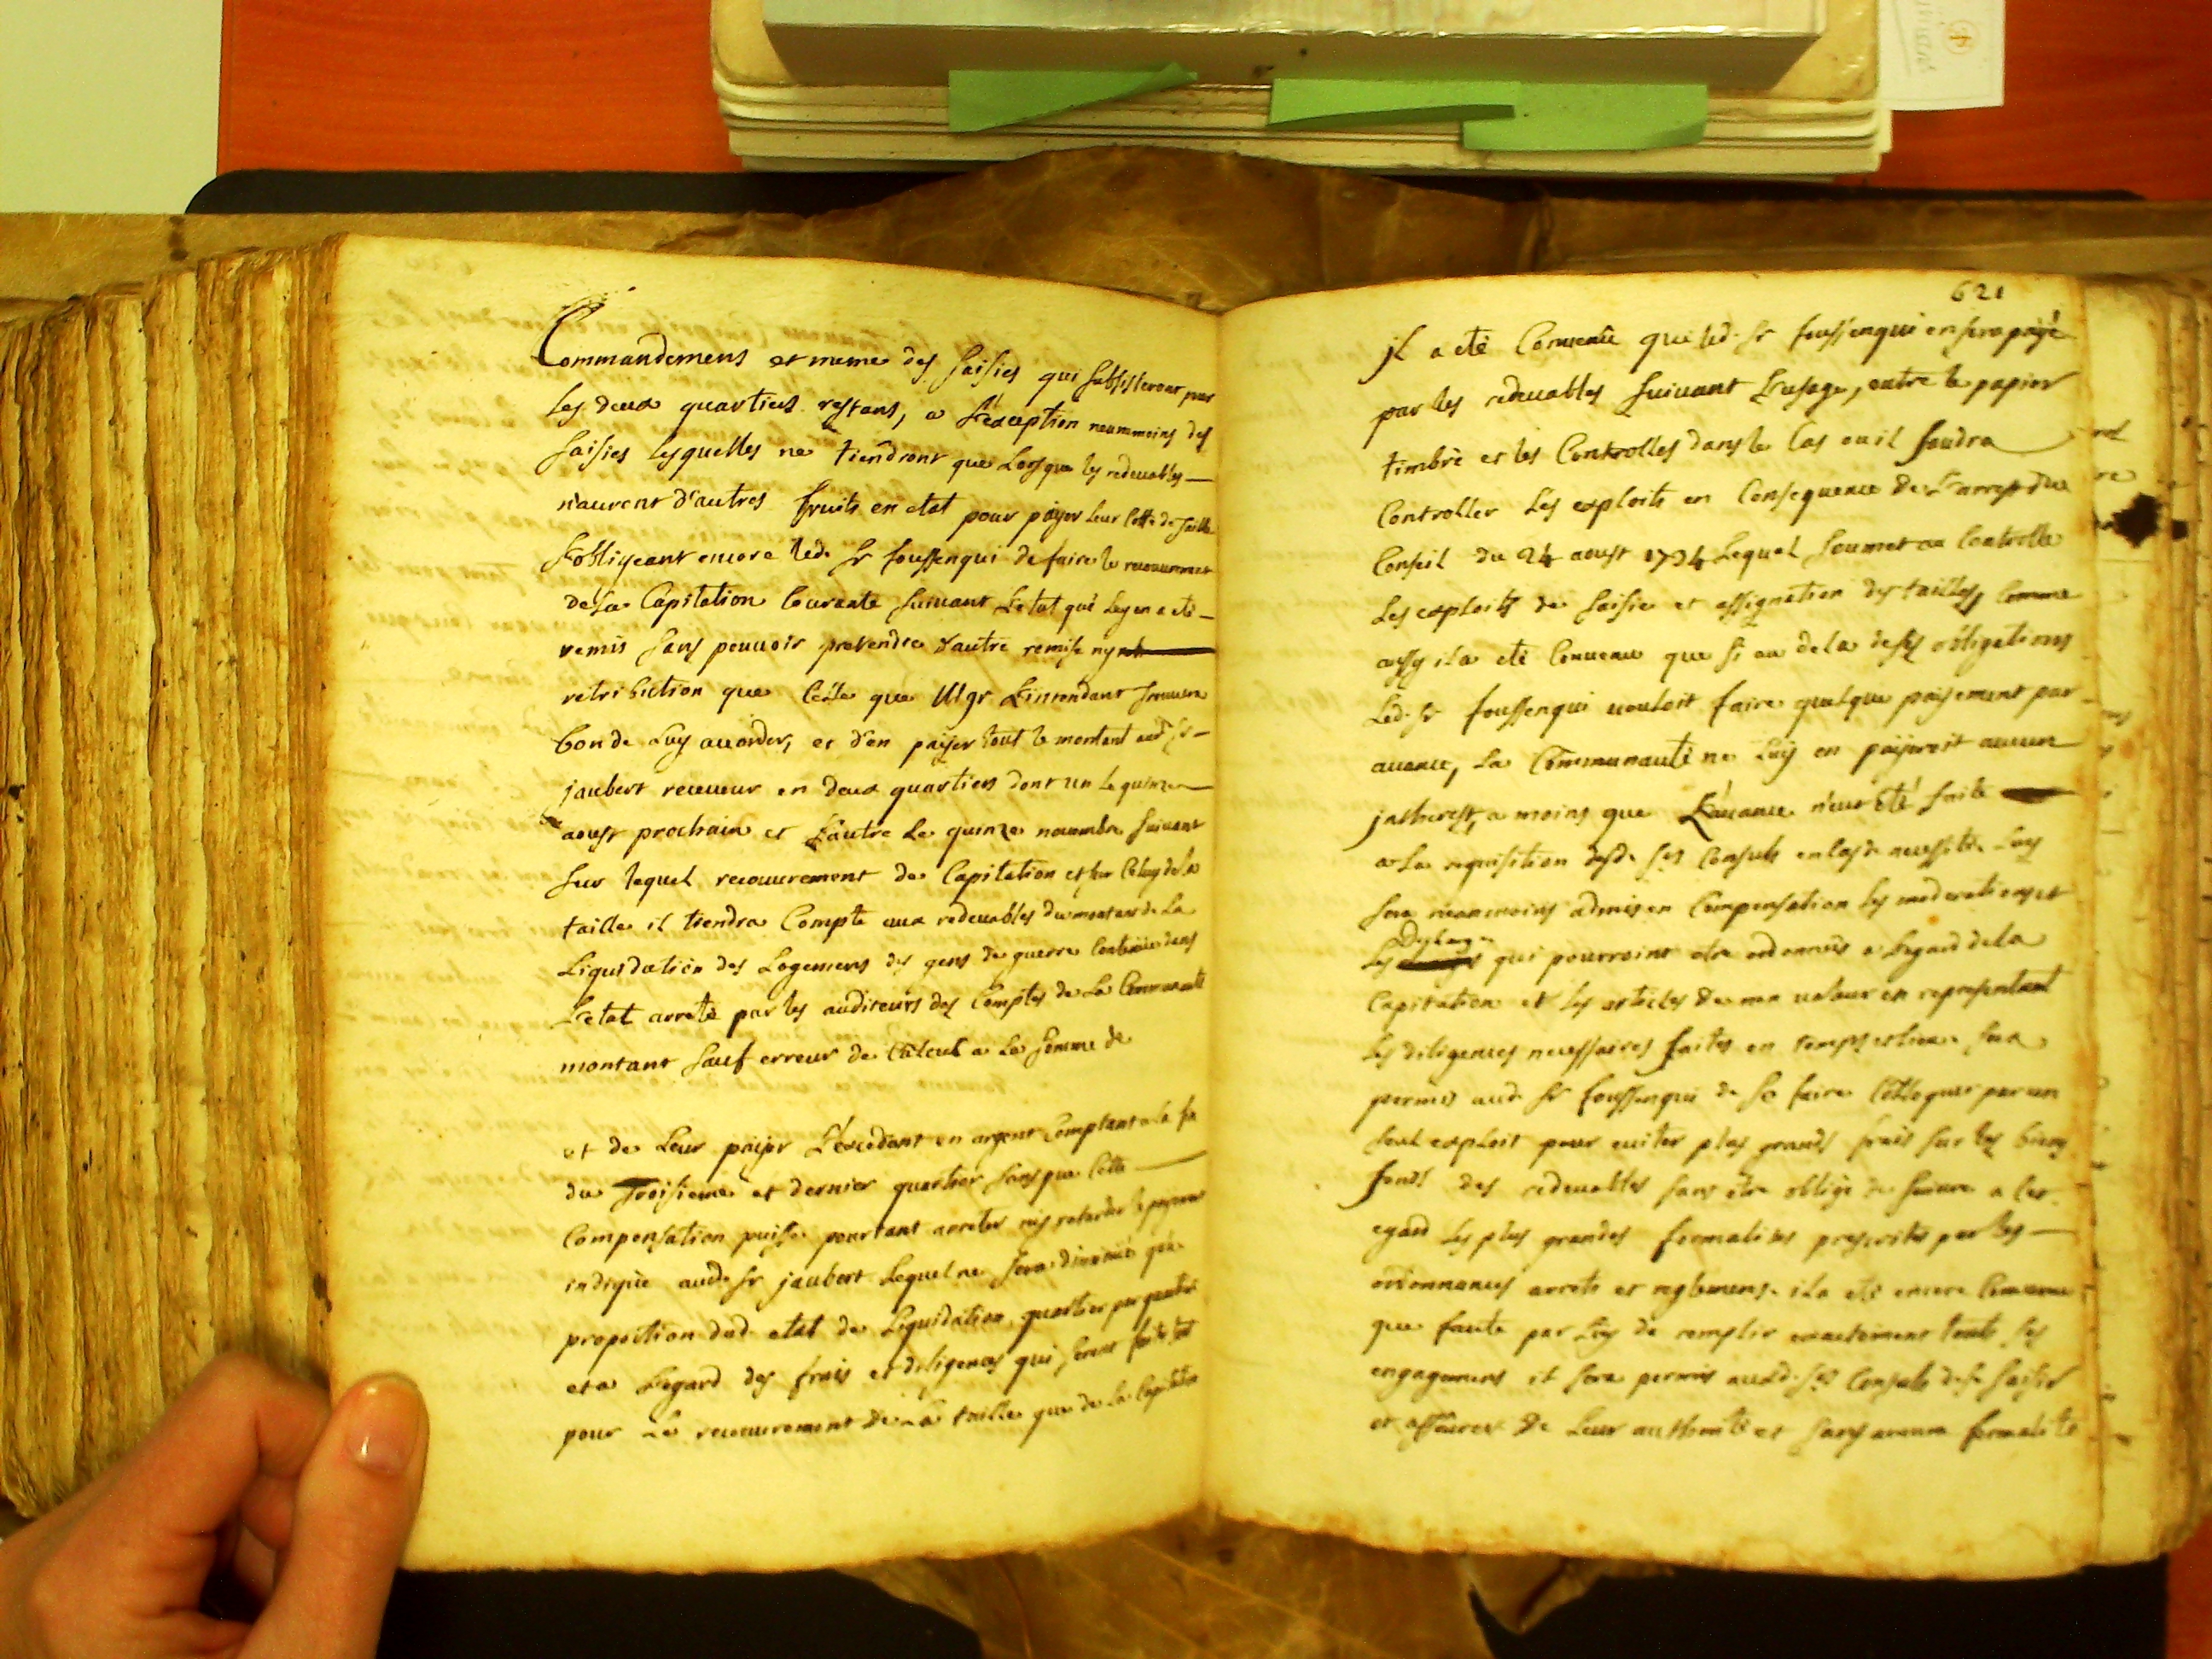 Commandemens et meme des saisies qui subsisteront pour
les deux quartiers restans, a l'exception neammoins des
saisies lesquelles ne tiendront que lorsque les redeuables
n'auront d'autres fruits en etat pour payer leur cotte de taille
s'obligeant encore led. sr foussenqui de faire le recouurement
de la Capitation Courante suiuant l'etat qui luy en a eté
remis sans pouuoir pretendre d'autre remise ny
retribution que Celle que Mgr L'intendant trouuera
bon de luy accorder, et d'en payer tout le montant aud sr
jaubert receueur en deux quartiers dont un le quinze
aoust prochain et L'autre le quinze nouembre suiuant
sur lequel recouurement de Capitation et sur Celuy de la
taille il tiendra Compte aux redeuables du montant de la
Liquidation des Logemens des gens de guerre Contenüe dans
L'etat arreté par les auditeurs des Comptes de la Communauté
montant sauf erreur de Calcul a la somme de
et de leur payer L'excedant en argent Comptant a la fin
du troisieme et dernier quartier sans que Cette
Compensation puisse pourtant arreter ny retarder le payement
indiqué aud. sr jaubert lequel ne sera diminué qu'a
proportion dud. etat de Liquidation quartier par quartier
et a L'egard des frais et diligences qui seront faits tant
pour le recouurement de La taille que de la Capitation
621
jl a eté Conuenu que led. sr foussenqui en sera payé
par les redeuables suiuant L'usage, outre le papier
timbré et les Controlles dans le Cas ou il faudra
Controller les exploits en Consequence de L'arrest du
Conseil du 24 aoust 1734 lequel soumet au Controlle
les exploits de saisie et assignation des tailles, Comme
aussy il a eté Conuenu que si au dela de ses obligations
led. sr foussenqui vouloit faire quelque payement par
auance, la Communauté ne luy en payeroit aucun
jntherest, a moins que L'auance n'eut été faite
a la requisition desd. srs Consuls en Cas de necessité. Luy
sera neanmoins admis en Compensation les moderations et
les Decharges qui pourroint etre ordonnées a L'egard de la
Capitation et les articles de non valeur en representant
les diligences necessaires faites en temps et lieu. sera
permis aud. sr foussenqui de se faire Colloquer par un
seul exploit pour euiter plus grands frais sur les biens
fonds des redeuables sans etre obligé de suiure a cet
egard les plus grandes formalités prescrites par les
ordonnances arrets et reglemens. il a eté encore Conuenu
que faute par luy de remplir exactement touts ses
engagemens il sera permis auxd. srs Consuls de se saisir
et assurer de leur authorité et sans aucune formalité